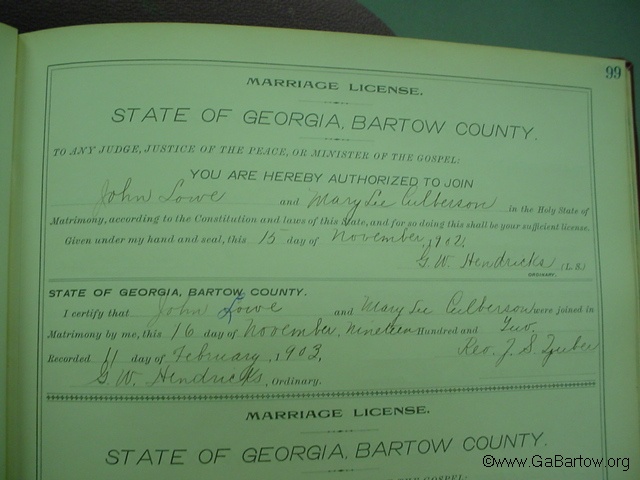 99
MARRIAGE LICENSE.
STATE OF GEORGIA, BARTOW COUNTY.
TO ANY JUDGE, JUSTICE OF THE PEACE, OR MINISTER OF THE GOSPEL:
YOU ARE HEREBY AUTHORIZED TO JOIN
John Lowe and Mary Lee Culberson in the Holy State of
Matrimony, according to the Constitution and laws of this State, and for so doing this shall be your sufficient license.
Given under my hand and seal, this 15 day of November, 1902.
G. W. Hendricks (L. S.)
ORDINARY.
STATE OF GEORGIA, BARTOW COUNTY.
I certify that John Lowe and Mary Lee Culberson were joined in
Matrimony by me, this 16 day of November, Nineteen Hundred and Two.
Recorded 11 day of February, 1903, Rev. J. S.
G. W. Hendricks, Ordinary.
MARRIAGE LICENSE.
STATE OF GEORGIA, BARTOW COUNTY.
©www.GaBartow.org